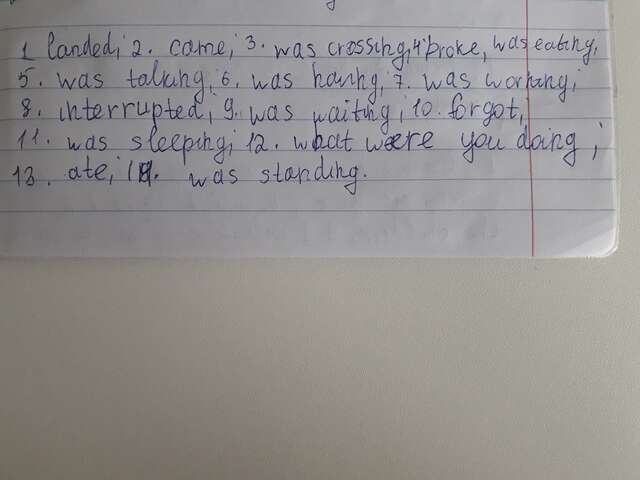 1 landed; 2. came; 3. was crossing; 4. broke, was eating;
5. was talking; 6. was having; 7. was working;
8. interrupted; 9. was waiting; 10. forgot,
11. was sleeping; 12. what were you doing;
13. ate; 14. was standing.